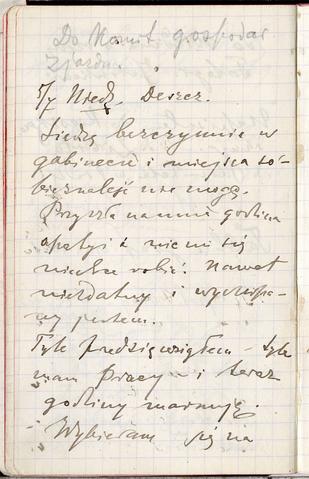 Do Komit. gospodar
Zjazdu.
5/7 Niedz. Deszcz.
Siedzę bezczynnie w
gabinecie i miejsca so-
bie znaleść nie mogę.
Przyszła na mnie godzina
apatyi i nic mi się
nie chce robić. Nawet
niezdatny i wyczerpa-
ny jestem.
Tyle przedsięwziąłem – tyle
mam pracy – i teraz
godziny marnuję.
Wybieram się na